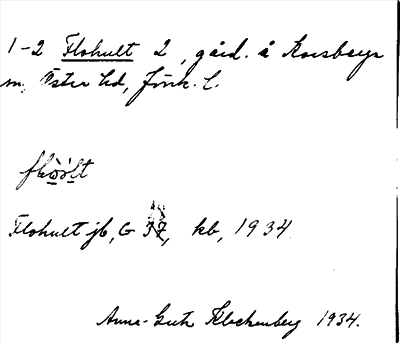 1-2 Flohult 2, gård. å Korsberga
m, Öster hd, Jönk. l.
flωò̀lt
Flohult jb, G 37, kb, 1934
Anna-Greta Klockenberg 1934.